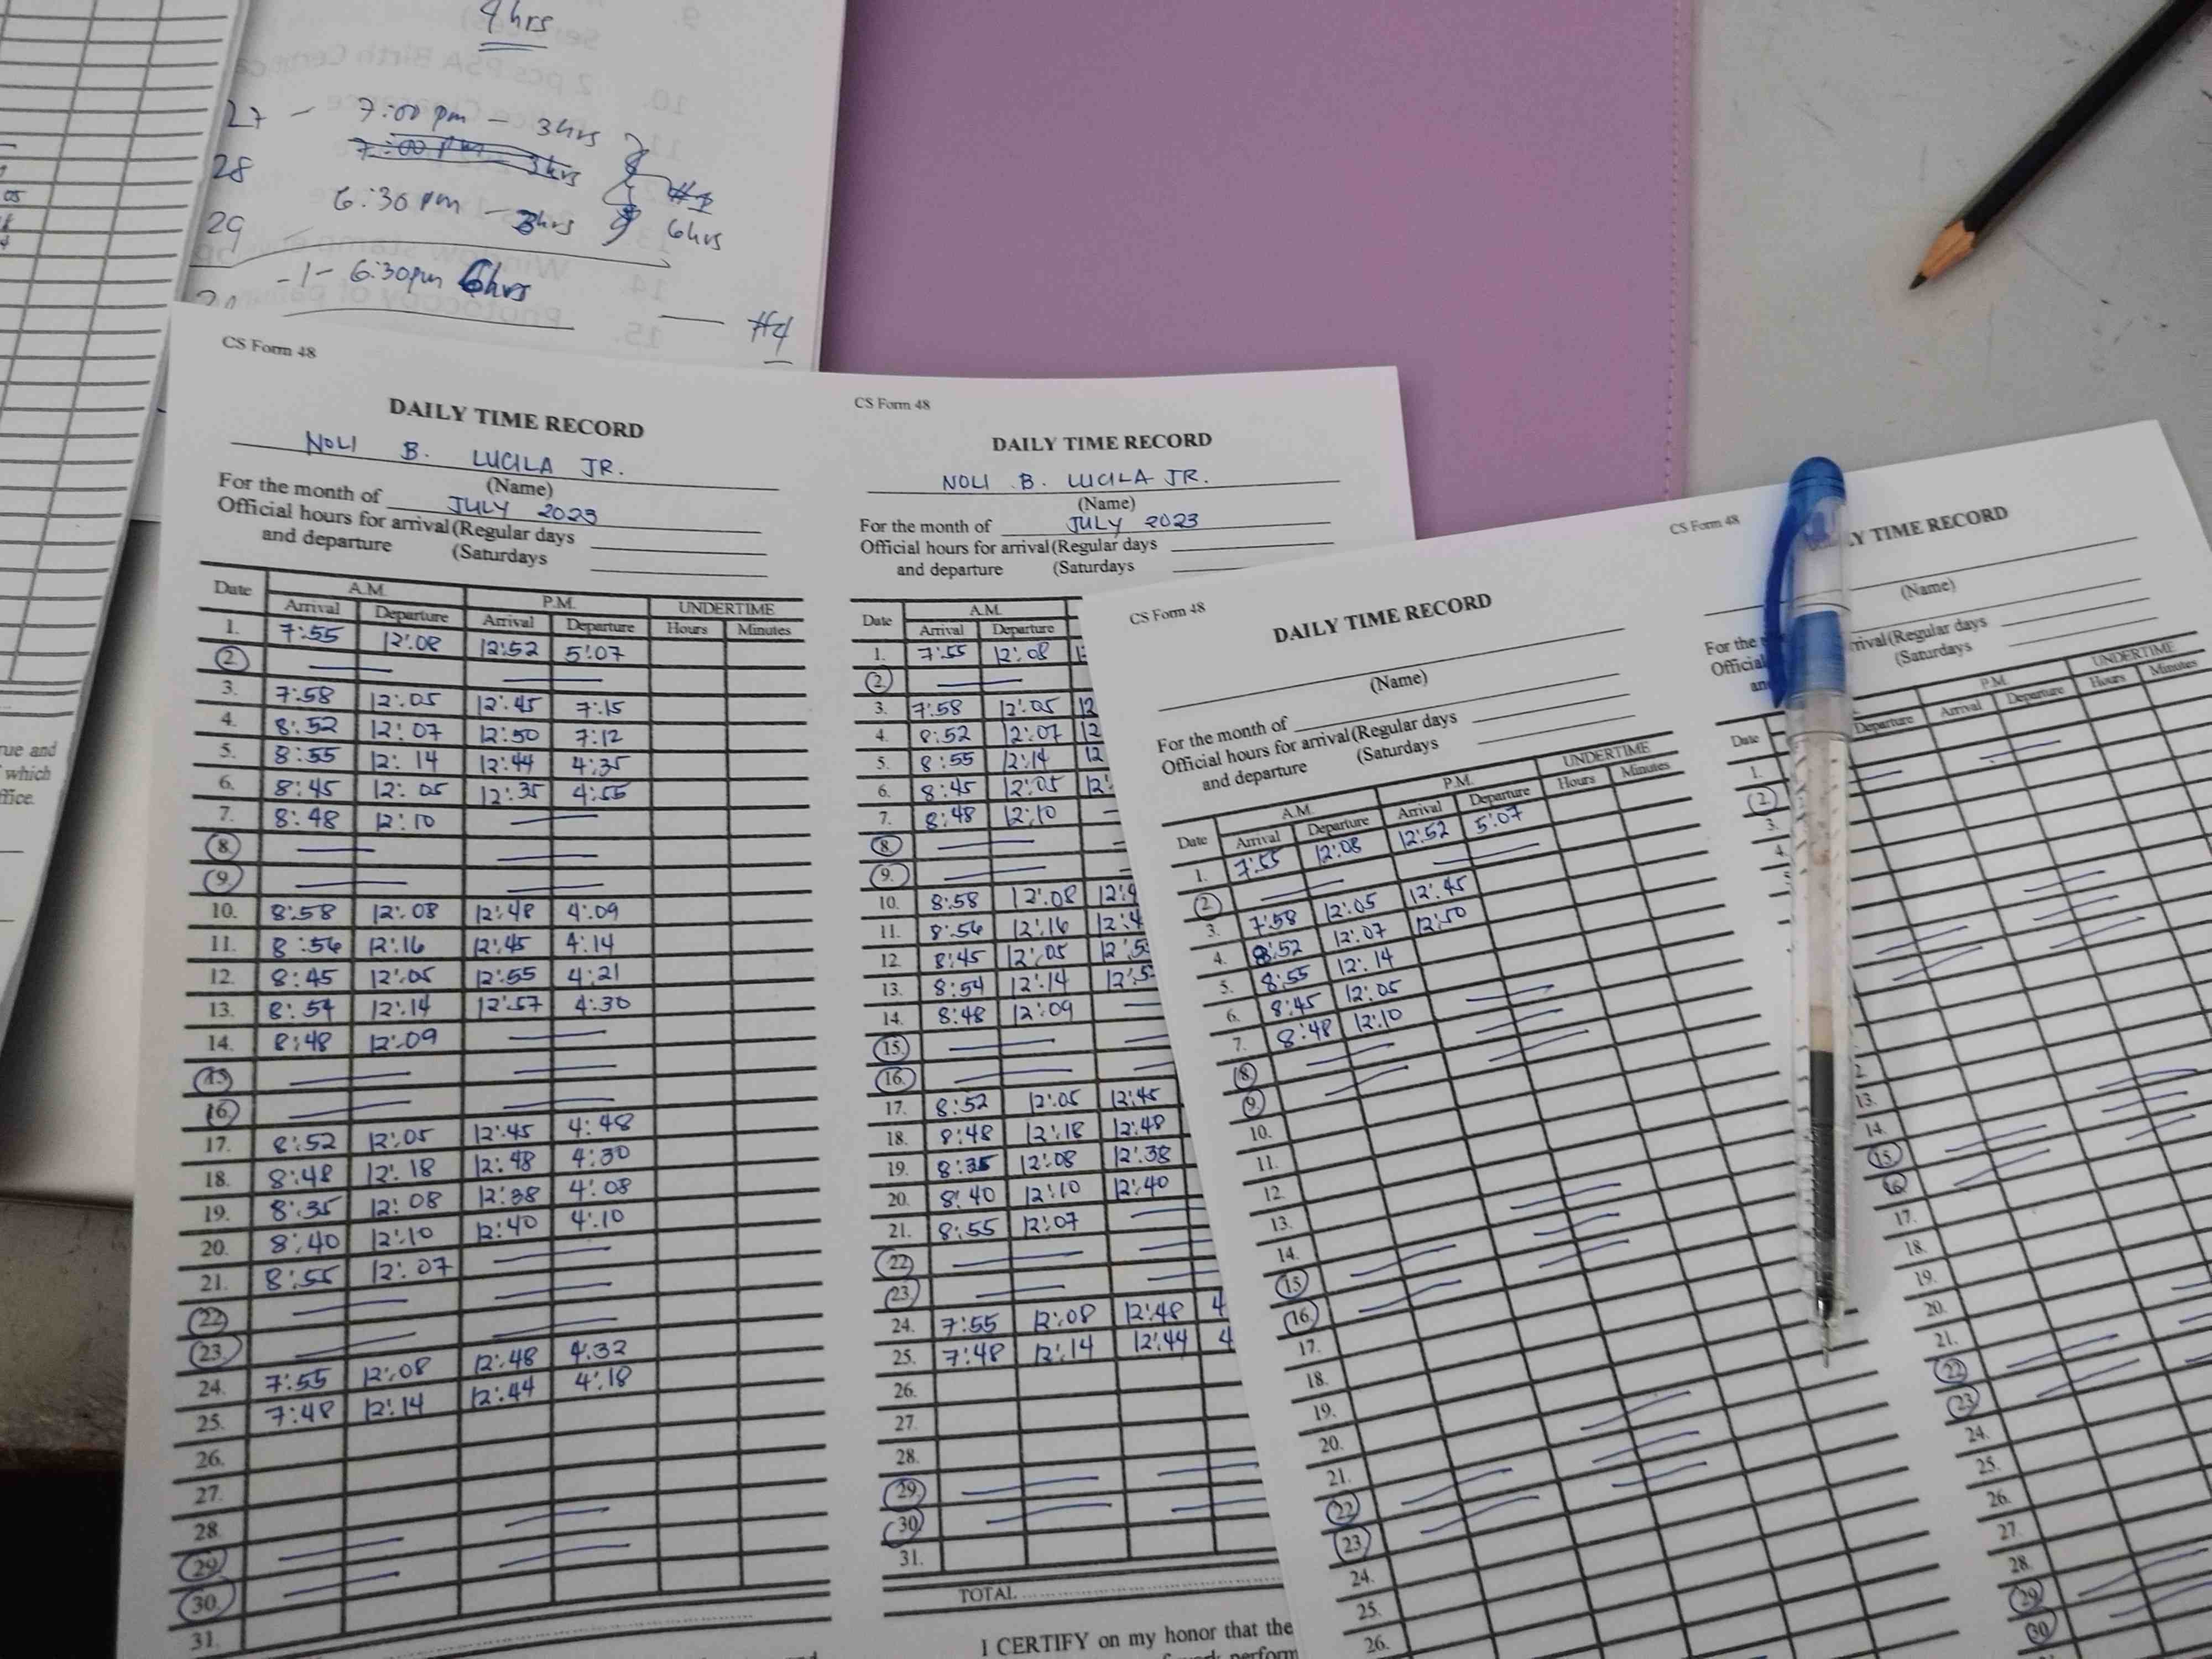 4hrs
27 - 7:00 pm - 3hrs
28 7:00 pm 3hrs
6:30 pm - 3hrs 6hrs
29
-1- 6:30pm 6hrs
#4
CS Form 48
DAILY TIME RECORD
NOLI B. LUCILA JR.
(Name)
For the month of JULY 2023
Official hours for arrival (Regular days
and departure (Saturdays
Date A.M. P.M. UNDERTIME
Arrival Departure Arrival Departure Hours Minutes
1. 7:55 12:08 12:52 5:07
2
3. 7:58 12:05 12:45 7:15
4. 8:52 12:07 12:50 7:12
5. 8:55 12:14 12:44 4:35
6. 8:45 12:05 12:35 4:55
7. 8:48 12:10
8.
9.
10. 8:58 12:08 12:48 4:09
11. 8:56 12:16 12:45 4:14
12. 8:45 12:05 12:55 4:21
13. 8:54 12:14 12:57 4:30
14. 8:48 12:09
15.
16.
17. 8:52 12:05 12:45 4:48
18. 8:48 12:18 12:48 4:30
19. 8:35 12:08 12:38 4:08
20. 8:40 12:10 12:40 4:10
21. 8:55 12:07
22.
23.
24. 7:55 12:08 12:48 4:32
25. 7:48 12:14 12:44 4:18
26.
27.
28.
29.
30.
31.
CS Form 48
DAILY TIME RECORD
NOLI B. LUCILA JR.
(Name)
For the month of JULY 2023
Official hours for arrival (Regular days
and departure (Saturdays
Date A.M.
Arrival Departure
1. 7:55 12:08
2
3. 7:58 12:05 12
4. 8:52 12:07 12
5. 8:55 12:14 12
6. 8:45 12:05 12:
7. 8:48 12:10
8.
9.
10. 8:58 12:08 12:4
11. 8:56 12:16 12:4
12. 8:45 12:05 12:5
13. 8:54 12:14 12:5
14. 8:48 12:09
15.
16.
17. 8:52 12:05 12:45
18. 8:48 12:18 12:48
19. 8:35 12:08 12:38
20. 8:40 12:10 12:40
21. 8:55 12:07
22
23.
24. 7:55 12:08 12:48 4
25. 7:48 12:14 12:44 4
26.
27.
28.
29.
30
31.
TOTAL
I CERTIFY on my honor that the
CS Form 48
DAILY TIME RECORD
(Name)
For the month of
Official hours for arrival (Regular days
and departure (Saturdays
Date A.M. P.M. UNDERTIME
Arrival Departure Arrival Departure Hours Minutes
1. 7:55 12:08 12:52 5:07
2.
3. 7:58 12:05 12:45
4. 8:52 12:07 12:50
5. 8:55 12:14
6. 8:45 12:05
7. 8:48 12:10
8.
9.
10.
11.
12.
13.
14.
15.
16.
17.
18.
19.
20.
21.
22
23.
24.
25.
26.
CS Form 48
LY TIME RECORD
(Name)
For the
Official rrival (Regular days
(Saturdays
Date P.M. UNDERTIME
Departure Arrival Departure Hours Minutes
1.
2
3.
4.
13.
14.
15.
16.
17.
18.
19.
20.
21.
22
23
24.
25.
26.
27.
28.
29
30